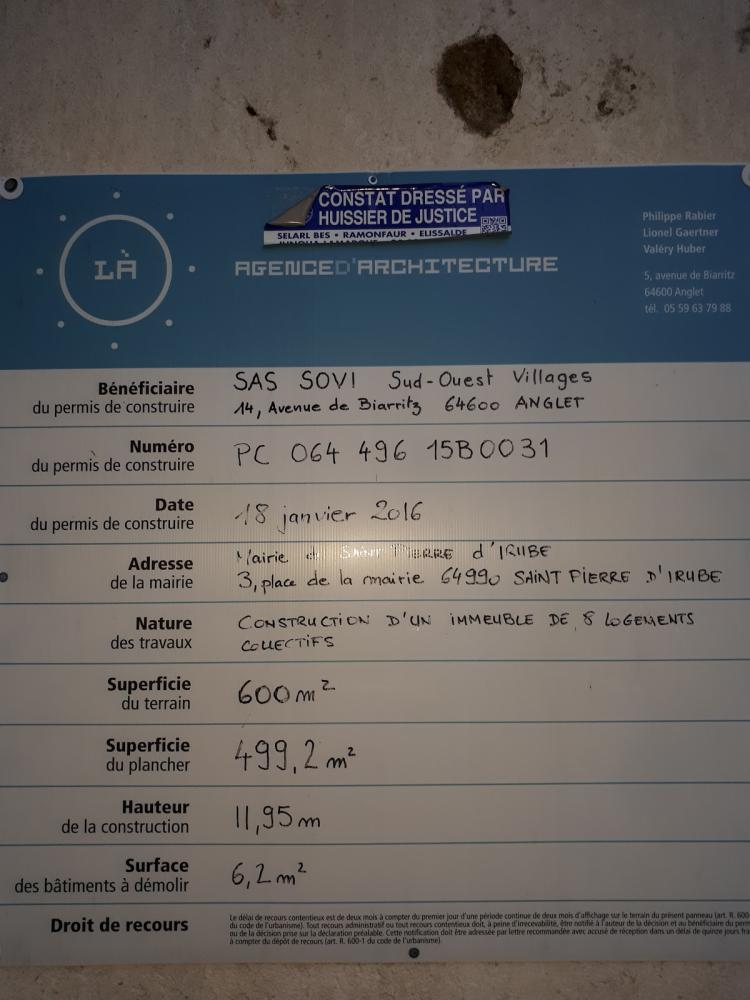 CONSTAT DRESSÉ PAR
HUISSIER DE JUSTICE
SELARL BES • RAMONFAUR • ELISSALDE
LÀ
AGENCE D'ARCHITECTURE
Philippe Rabier
Lionel Gaertner
Valéry Huber
5, avenue de Biarritz
64600 Anglet
tél. 05 59 63 79 88
Bénéficiaire
du permis de construire
SAS SOVI Sud-Ouest Villages
14, Avenue de Biarritz 64600 ANGLET
Numéro
du permis de construire
PC 064 496 15B0031
Date
du permis de construire
18 janvier 2016
Adresse
de la mairie
Mairie PIERRE d'IRUBE
3, place de la mairie 64990 SAINT PIERRE D'IRUBE
Nature
des travaux
CONSTRUCTION D'UN IMMEUBLE DE 8 LOGEMENTS
COLLECTIFS
Superficie
du terrain
600 m²
Superficie
du plancher
499,2 m²
Hauteur
de la construction
11,95 m
Surface
des bâtiments à démolir
6,2 m²
Droit de recours
Le délai de recours contentieux est de deux mois à compter du premier jour d'une période continue de deux mois d'affichage sur le terrain du présent panneau (art. R. 600-
du code de l'urbanisme). Tout recours administratif ou tout recours contentieux doit, à peine d'irrecevabilité, être notifié à l'auteur de la décision et au bénéficiaire du perm
ou de la décision prise sur la déclaration préalable. Cette notification doit être adressée par lettre recommandée avec accusé de réception dans un délai de quinze jours fra
à compter du dépôt de recours (art. R. 600-1 du code de l'urbanisme).